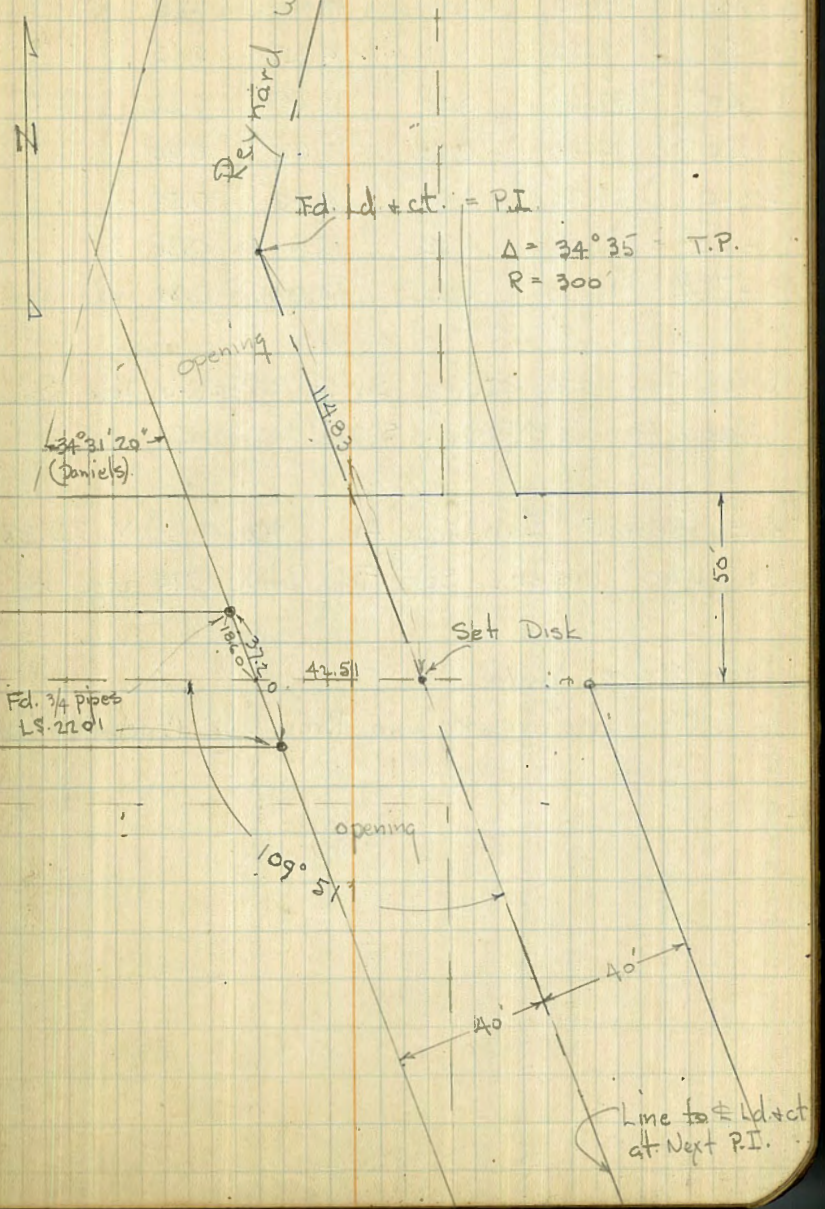 N
Fd. Ld & ct. = P.I.
Δ = 34°35' T.P.
R = 300'
opening
114.83
34°31'20"
(Daniels)
50'
Set Disk
18.60
37.20
42.51
Fd. 3/4 pipes
LS. 2201
opening
109° 51'
40'
40'
Line to ℄ Ld. & ct
at Next P.I.